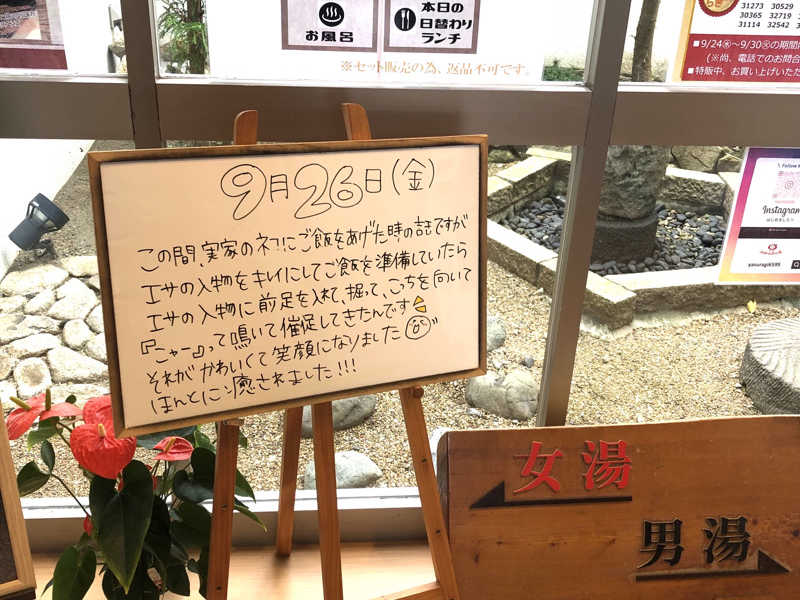 お風呂
本日の
日替わり
ランチ
※セット販売の為、返品不可です。
31273 30529
30365 32719
31114 32542
■9/24㊌～9/30㊋の期間
(※尚、電話でのお問合
■特販中、お買い上げいただ
9月26日(金)
この間、実家のネコにご飯をあげた時の話ですが
エサの入物をキレイにしてご飯を準備していたら
エサの入物に前足を入れて、掘って、こっちを向いて
『ニャー』って鳴いて催促してきたんです
それがかわいくて笑顔になりました
ほんとに、癒されました!!!
Follow
Instagram
はじめました!
yawaragi0599
女湯
男湯